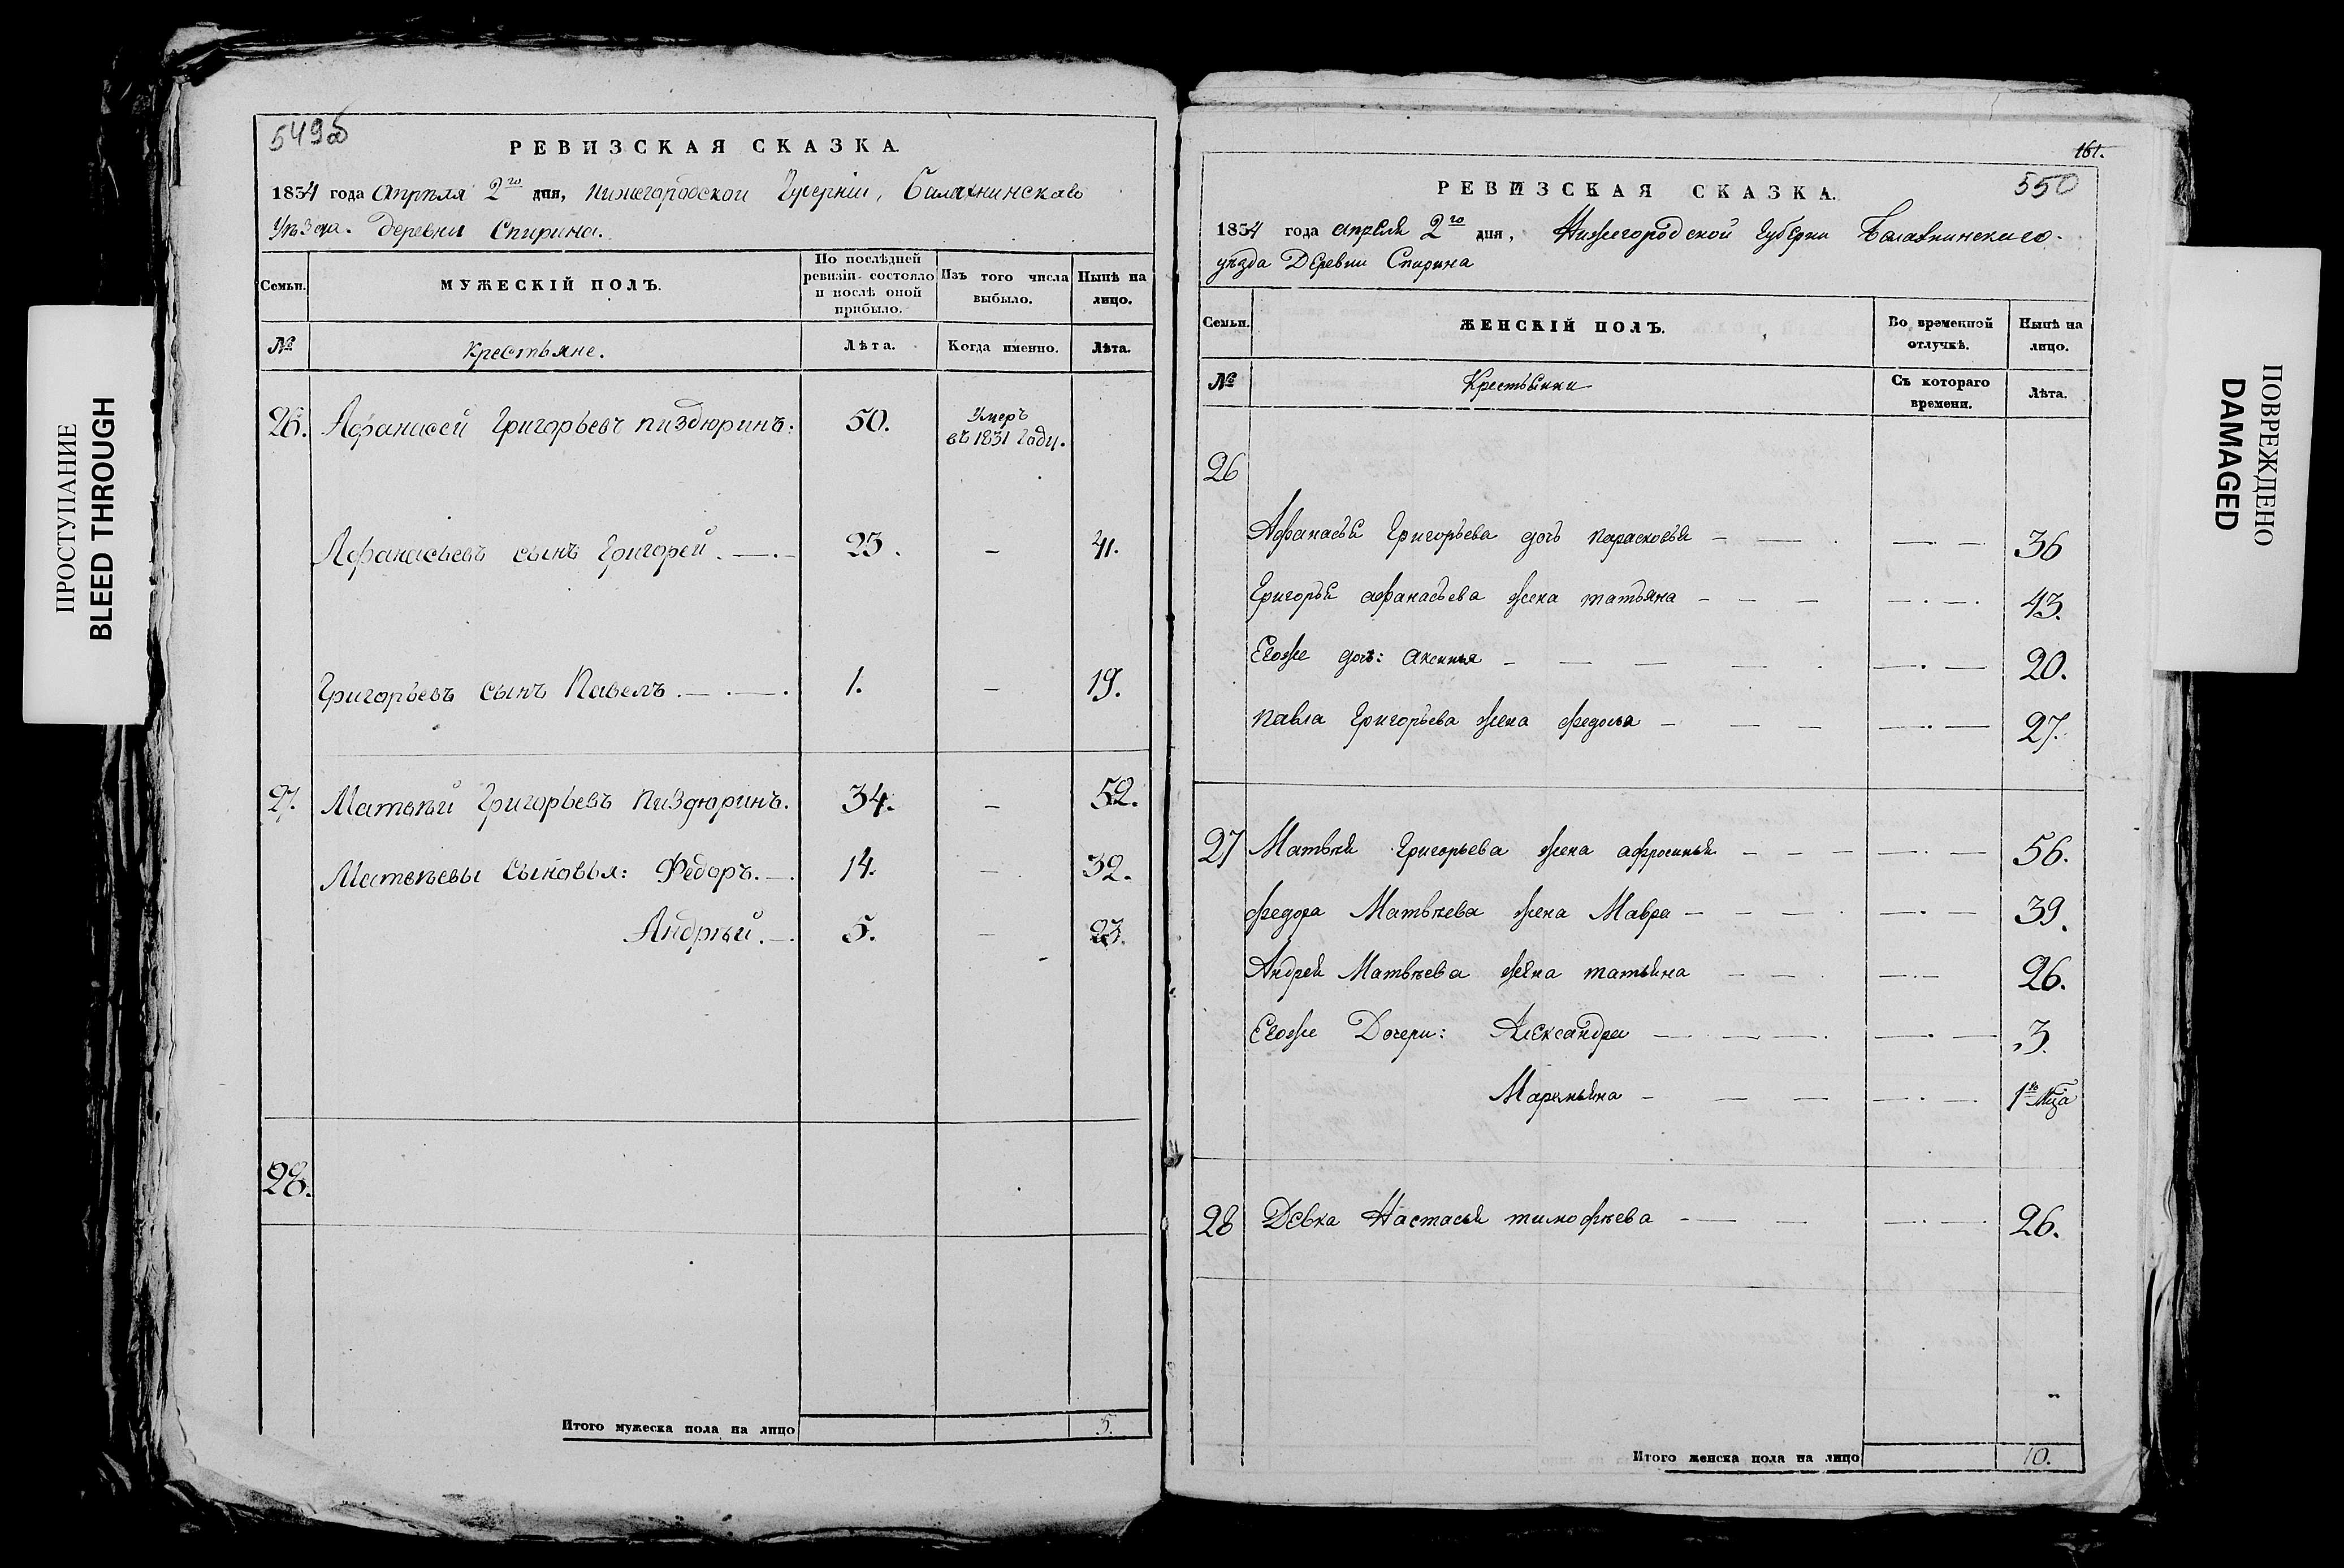 ПРОСТУПАНИЕ
BLEED THROUGH
549об
РЕВИЗСКАЯ СКАЗКА.
1834 года Апрѣля 2го дня, Нижегородской Губерніи, Балахнинскаго
Уѣзда. Деревни Спирина.
Семьи. МУЖЕСКІЙ ПОЛЪ. По послѣдней ревизіи состояло и послѣ оной прибыло. Изъ того числа выбыло. Нынѣ на лицо.
№ Крестьяне. Лѣта. Когда именно. Лѣта.
26. Афанасей Григорьевъ Пиздюринъ: 50. Умеръ въ 1831 году.
Афанасьевъ сынъ Григорей. — . – 23. – 41.
Григорьевъ сынъ Павелъ. — . — . 1. – 19.
27. Матвѣй Григорьевъ Пиздюринъ. 34. – 52.
Матвѣевы Сыновья: Федоръ. — . 14. – 32.
Андрѣй. — . 5. – 23.
28.
Итого мужеска пола на лицо 5.
161.
550
РЕВИЗСКАЯ СКАЗКА.
1834 года апреля 2го дня, Нижегородской Губерни Балахнинскаго
уѣзда Деревни Спирина
Семьи. ЖЕНСКІЙ ПОЛЪ. Во временной отлучкѣ. Нынѣ на лицо.
№ Крестьянки Съ котораго времени. Лѣта.
26
Афанасья Григорьева дочь Парасковья – — . — . — 36
Григорья афанасьева жена татьяна – – — — . — . 43.
Егоже дочь: аксинья – — — — . — . — 20.
Павла Григорьева жена федосья – — — — . — 27.
27 Матвея Григорьева жена афросинья – – — — . — 56.
федора Матвѣева жена Мавра – – – — . — . — 39.
Андрея Матвѣева жена татьяна – — . — . — 26.
Егоже Дочери: Александра — . — — . — . — 3.
Маремьяна – — — — . — . 1го Мца
28 Девка Настасья тимофѣева – — — — . — . 26.
Итого женска пола на лицо 10.
ПОВРЕЖДЕНО
DAMAGED